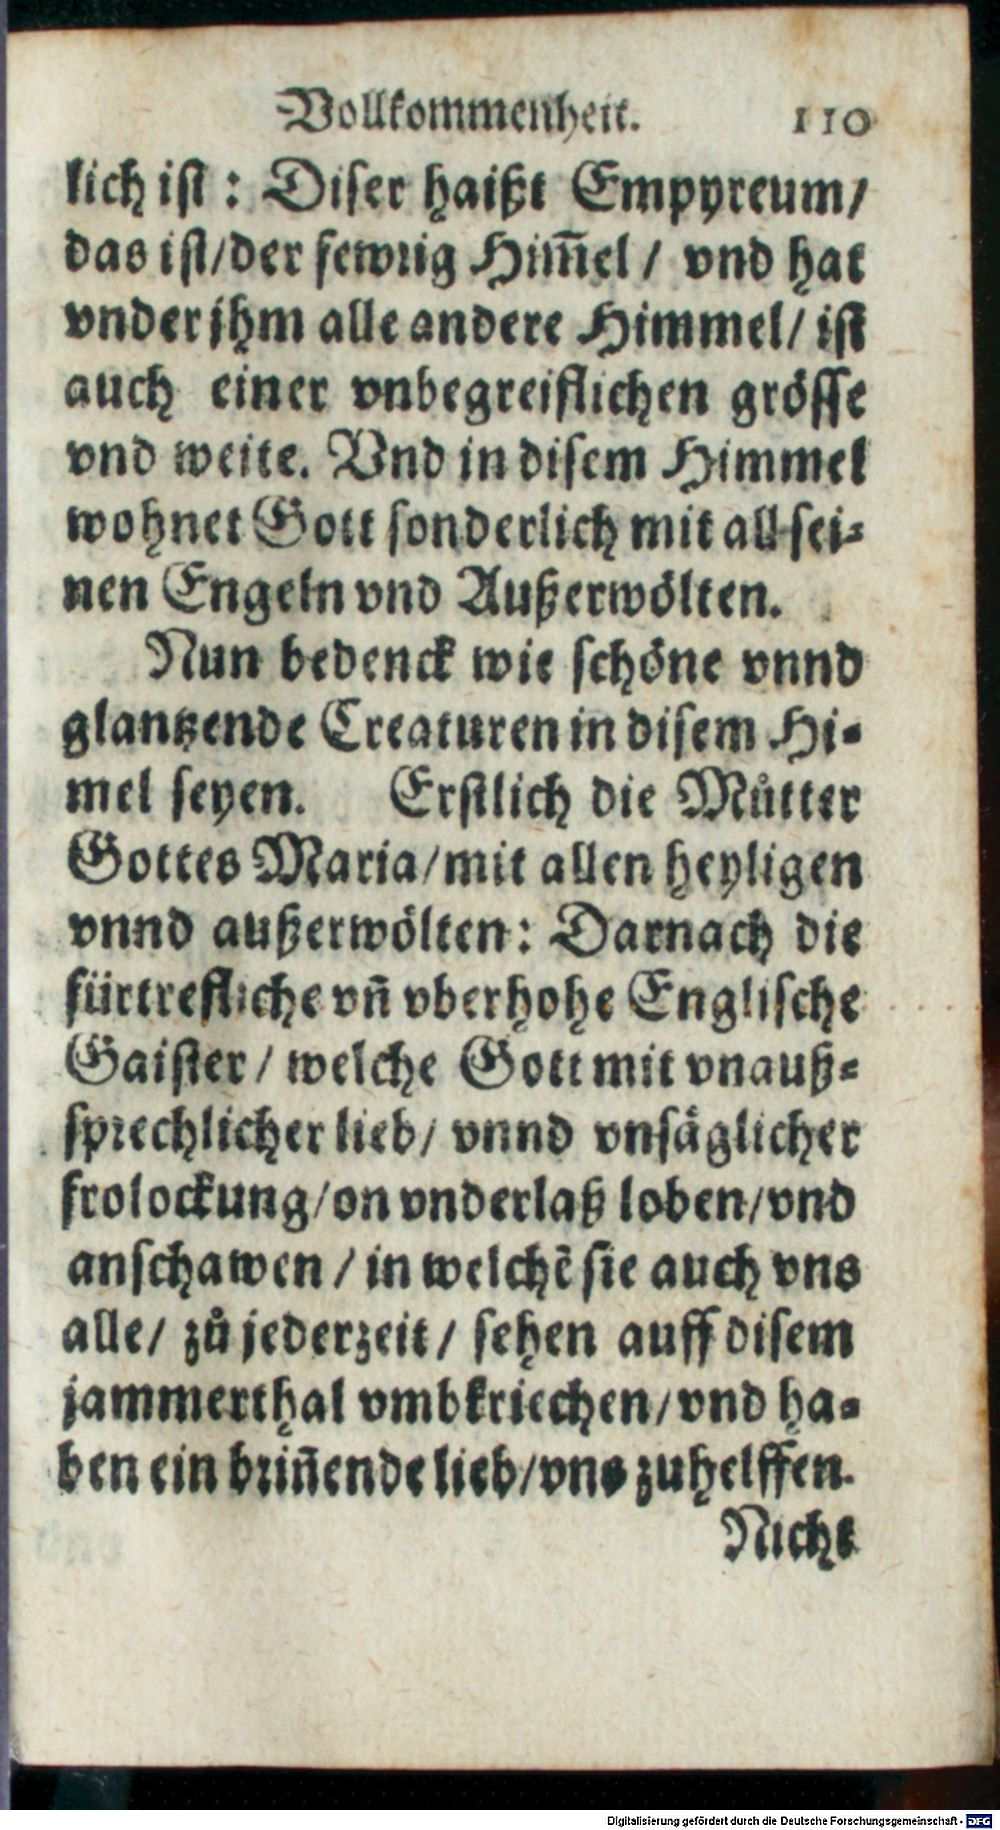 Vollkommenheit. 110
lich ist : Diser haißt Empyreum/
das ist/der fewrig Him̄el / vnd hat
vnder jhm alle andere Himmel/ ist
auch einer vnbegreiflichen grösse
vnd weite. Vnd in disem Himmel
wohnet Gott sonderlich mit all sei-
nen Engeln vnd Außerwölten.
Nun bedenck wie schöne vnnd
glantzende Creaturen in disem Hi-
mel seyen. Erstlich die Můtter
Gottes Maria/mit allen heyligen
vnnd außerwölten: Darnach die
fürtrefliche vn̄ vberhohe Englische
Gaister / welche Gott mit vnauß-
sprechlicher lieb/ vnnd vnsäglicher
frolockung/on vnderlaß loben/vnd
anschawen / in welchē sie auch vns
alle/ zů jederzeit / sehen auff disem
jammerthal vmbkriechen/vnd ha-
ben ein brin̄ende lieb/vns zuhelffen.
Nicht
Digitalisierung gefördert durch die Deutsche Forschungsgemeinschaft - DFG